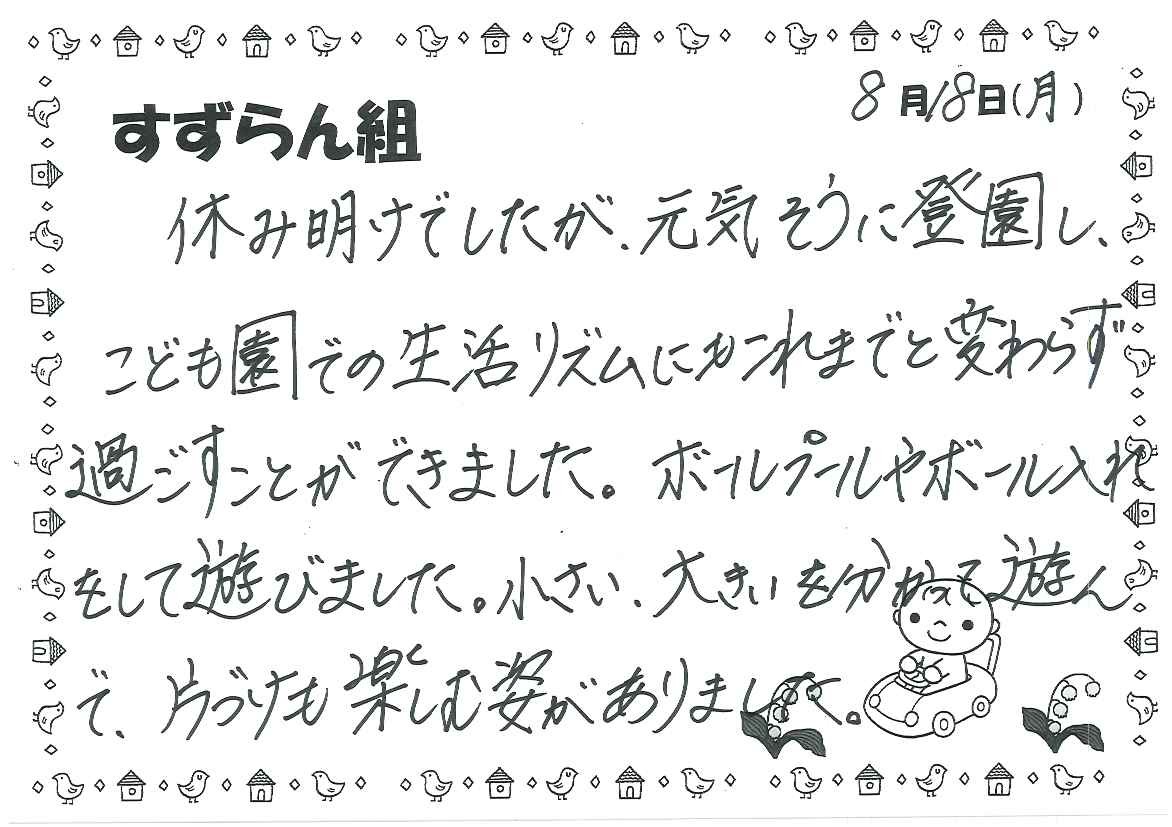 8月18日(月)
すずらん組
休み明けでしたが、元気そうに登園し、
こども園での生活リズムにもこれまでと変わらず
過ごすことができました。ボールプールやボール入れ
をして遊びました。小さい、大きいを分かって遊ん
で、片づけも楽しむ姿がありました。